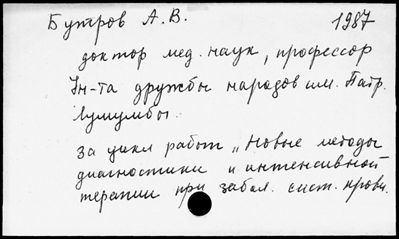 Бутров А.В. 1987
доктор мед. наук, профессор
Ин-та дружбы народов им. Патр.
Лумумбы.
за цикл работ „Новые методы
диагностики и интенсивной
терапии при забол. сист. крови.